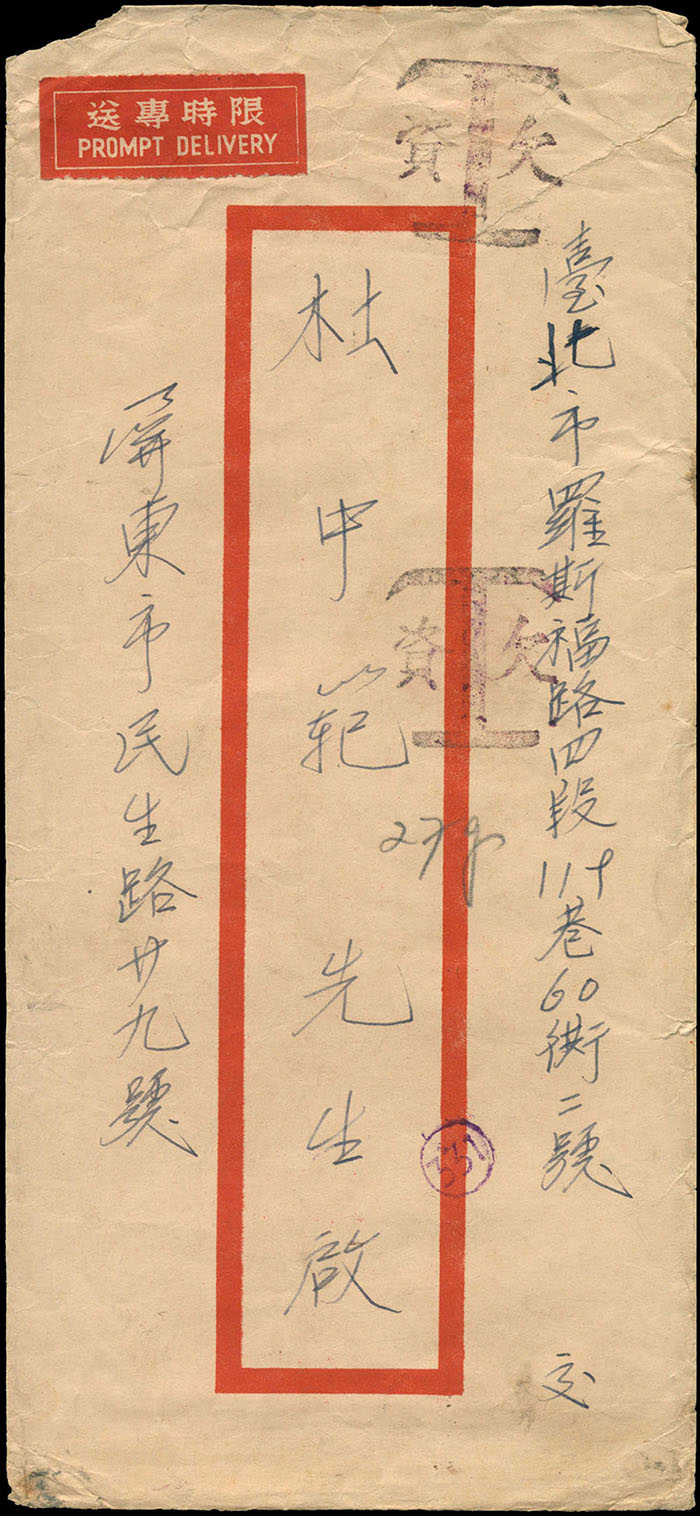 限時專送
PROMPT DELIVERY
欠T資
臺北市羅斯福路四段119巷60衖二號 交
欠T資
杜中範先生啟
屏東市民生路廿九號